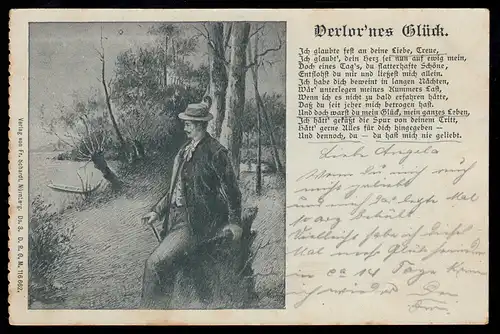 Verlor'nes Glück.
Ich glaubte fest an deine Liebe, Treue,
Ich glaubt', dein Herz sei nun auf ewig mein,
Doch eines Tag's, du flatterhafte Schöne,
Entflohst du mir und ließest mich allein.
Ich habe dich beweint in langen Nächten,
Wär' unterlegen meines Kummers Last,
Wenn ich es nicht zu bald erfahren hätte,
Daß du seit jeher mich betrogen hast.
Und doch warst du mein Glück, mein ganzes Leben,
Ich hätt' geküßt die Spur von deinem Tritt,
Hätt' gerne Alles für dich hingegeben —
Und dennoch, du — du hast mich nie geliebt.
Liebe Angela
Wenn Du mich auch
nicht
und mich das letzte Mal
so arg
Vielleicht habe ich dieses
Mal mehr Glück
in ca 14 Tage
ich wieder
Verlag von Fr. Schardt, Nürnberg. Ds. S. D. R. G. M. 116 082.